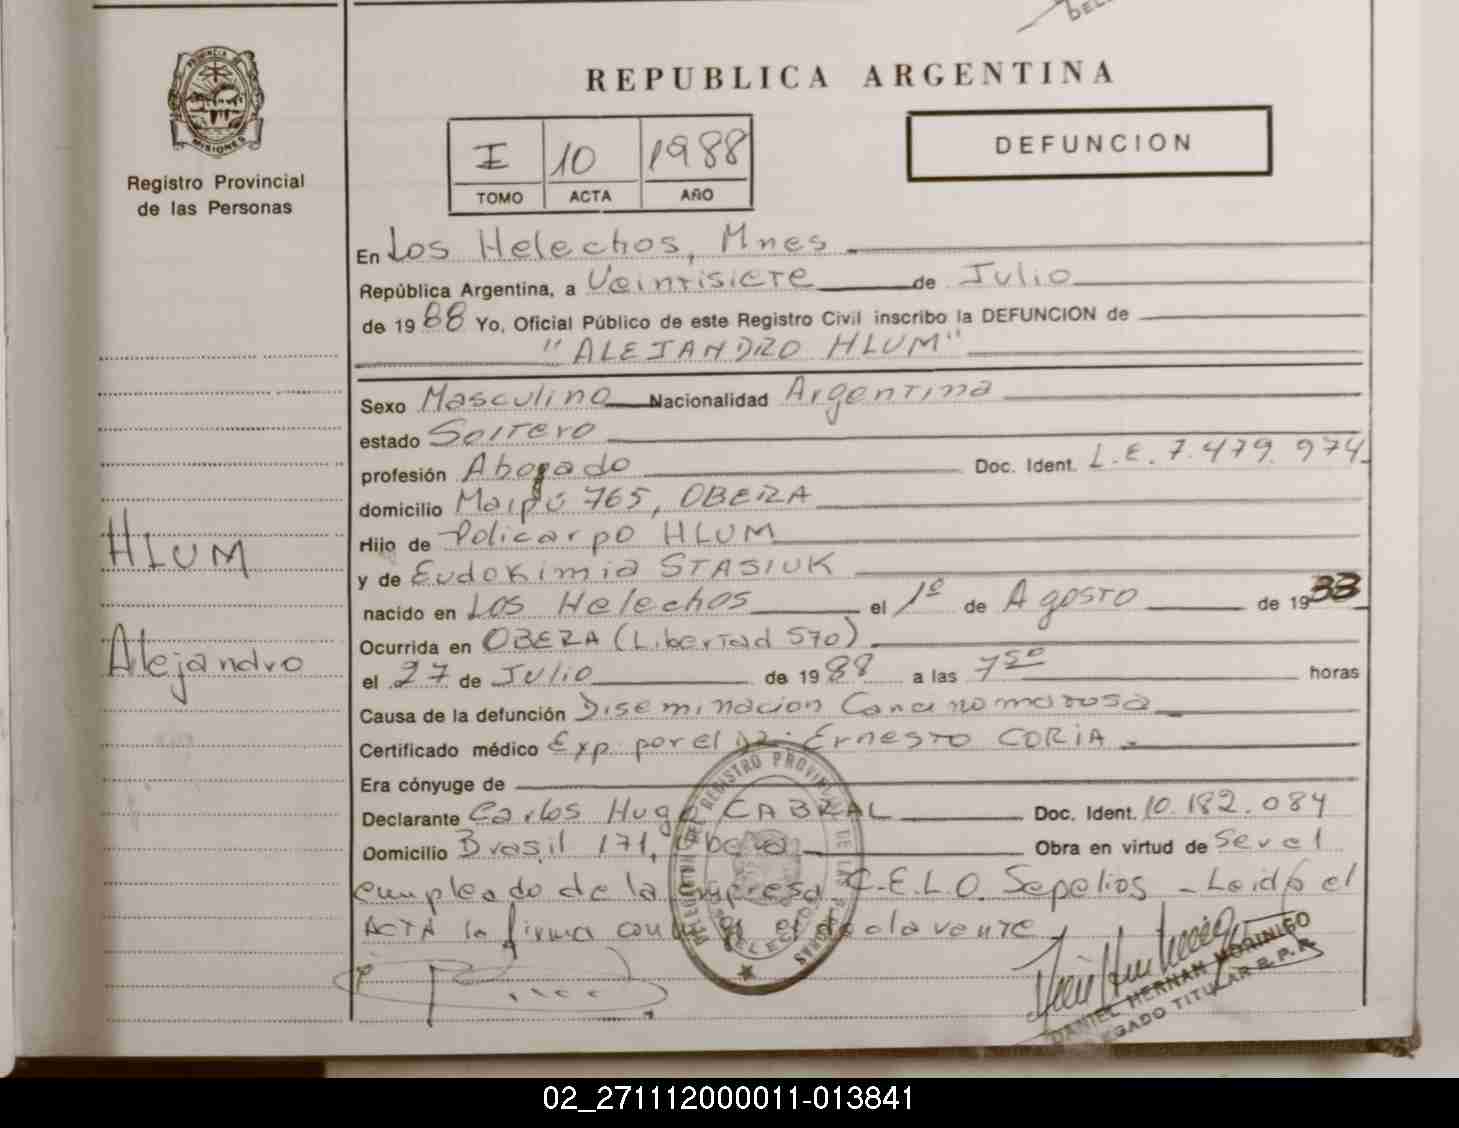 PROVINCIA DE
MISIONES
Registro Provincial
de las Personas
HLUM
Alejandro
REPUBLICA ARGENTINA
I 10 1988
TOMO ACTA AÑO
DEFUNCION
En Los Helechos, Mnes
República Argentina, a Veintisiete de Julio
de 1988 Yo, Oficial Público de este Registro Civil inscribo la DEFUNCION de
"ALEJANDRO HLUM"
Sexo Masculino Nacionalidad Argentina
estado Soltero
profesión Abogado Doc. Ident. L.E. 7.479.974
domicilio Maipú 765, OBERA
Hijo de Policarpo HLUM
y de Eudokimia STASIUK
nacido en Los Helechos el 1º de Agosto de 1933
Ocurrida en OBERA (Libertad 570)
el 27 de Julio de 1988 a las horas
Causa de la defunción Diseminacion
Certificado médico Exp. por el Dr. Ernesto CORIA.
Era cónyuge de
Declarante Carlos Hugo CABRAL Doc. Ident. 10.182.084
Domicilio Brasil 171, Obera Obra en virtud de Ser el
empleado de la empresa C.E.L.O. Sepelios - Leida el
ACTA la firma conmigo el declarante
DANIEL HERNAN MORINIGO
DELEGADO TITULAR R.P.P.
02_271112000011-013841